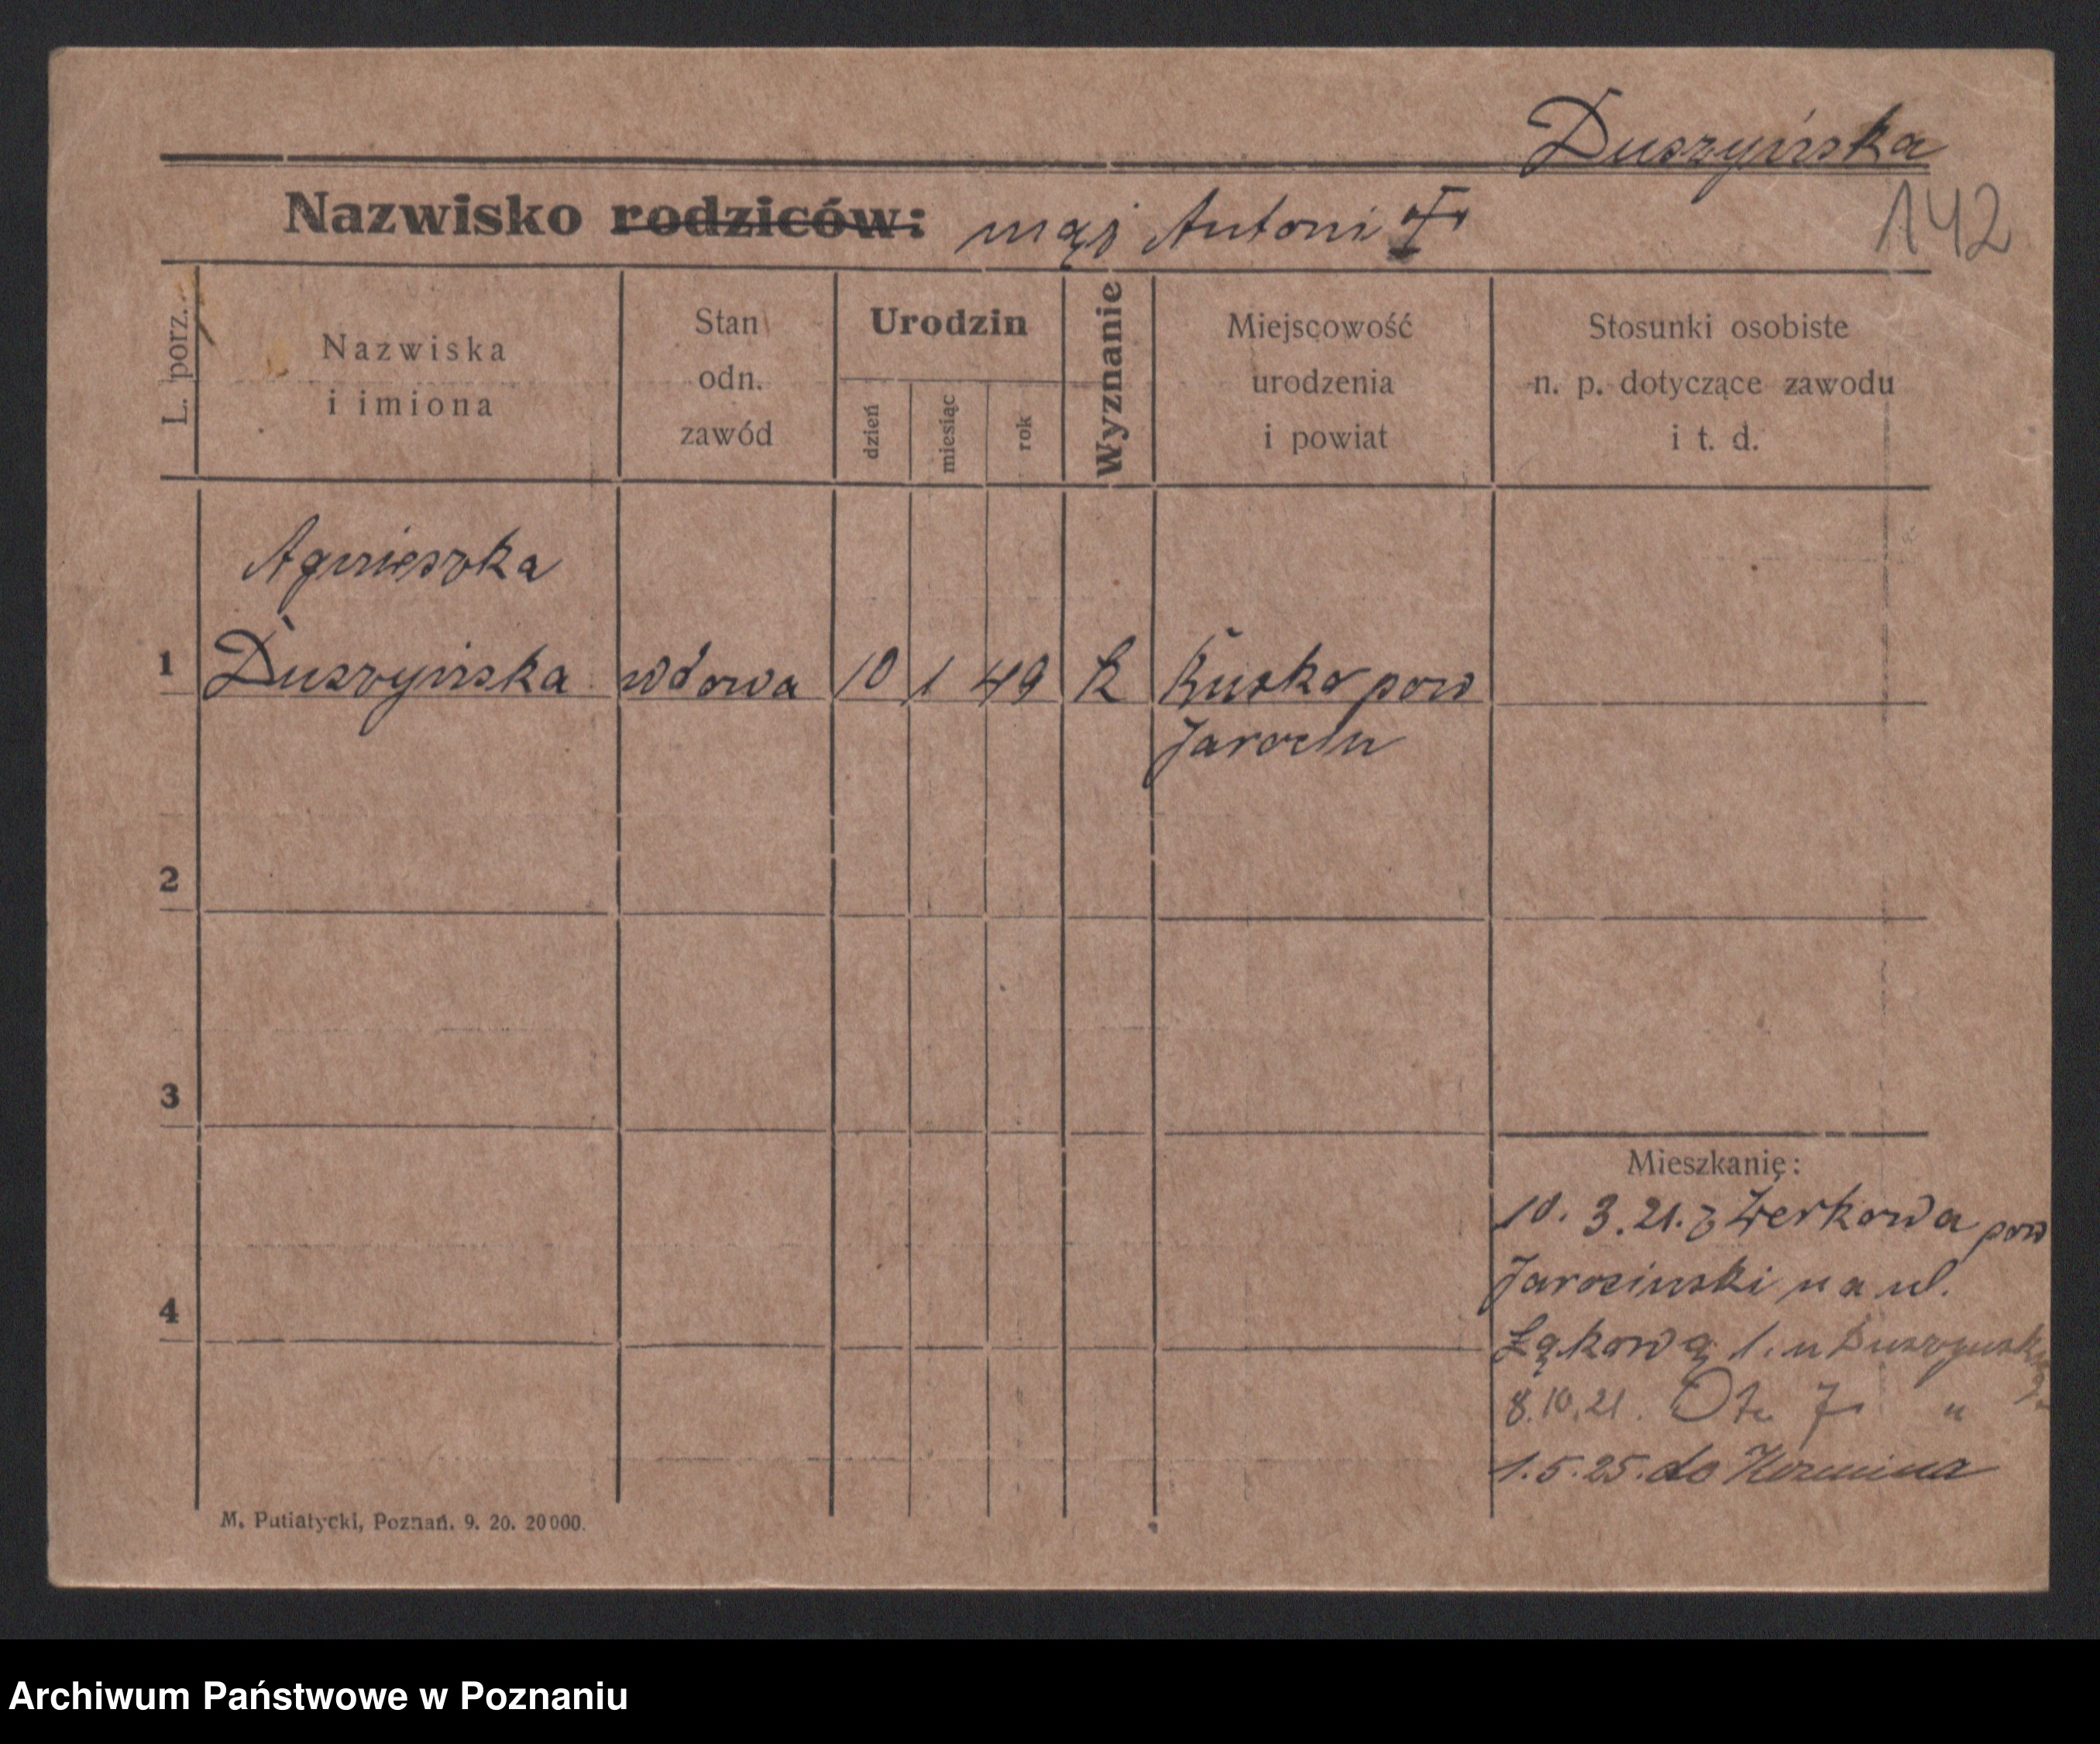 Duszyńska
142
Nazwisko rodziców: mąż Antoni
L. porz.
Nazwiska
i imiona
Stan
odn.
zawód
Urodzin
dzień
miesiąc
rok
Wyznanie
Miejscowość
urodzenia
i powiat
Stosunki osobiste
n. p. dotyczące zawodu
i t. d.
Agnieszka
1 Duszyńska wdowa 10 1 49 k Ruska pow
Jarocin
2
3
Mieszkanie:
10. 3. 21. z Żerkowa pow
Jarocinski na ul.
4
Łąkową 1. u
8. 10. 21. "
1. 5. 25. do
M. Putiatycki, Poznań. 9. 20. 20000.
Archiwum Państwowe w Poznaniu